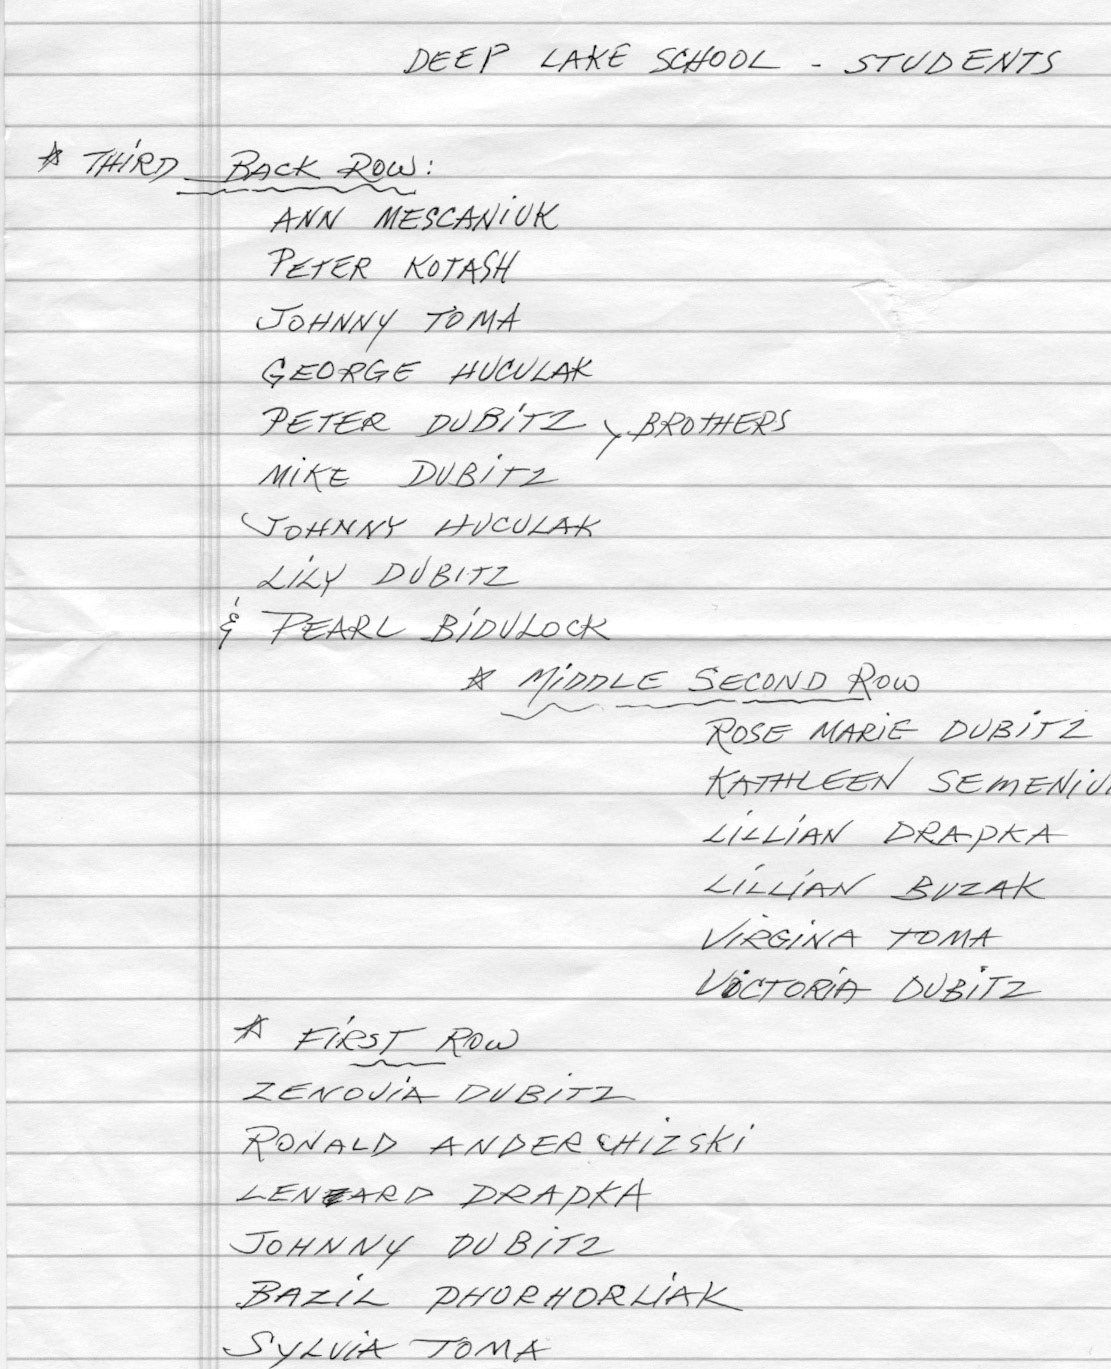 DEEP LAKE SCHOOL - STUDENTS
* THIRD BACK ROW:
ANN MESCANIUK
PETER KOTASH
JOHNNY TOMA
GEORGE HUCULAK
PETER DUBITZ > BROTHERS
MIKE DUBITZ
JOHNNY HUCULAK
LILY DUBITZ
& PEARL BIDULOCK
* MIDDLE SECOND ROW
ROSE MARIE DUBITZ
KATHLEEN SEMENIU
LILLIAN DRAPKA
LILLIAN BUZAK
VIRGINA TOMA
VICTORIA DUBITZ
* FIRST ROW
ZENOVIA DUBITZ
RONALD ANDERCHIZSKI
LENARD DRAPKA
JOHNNY DUBITZ
BAZIL PHORHORLIAK
SYLVIA TOMA